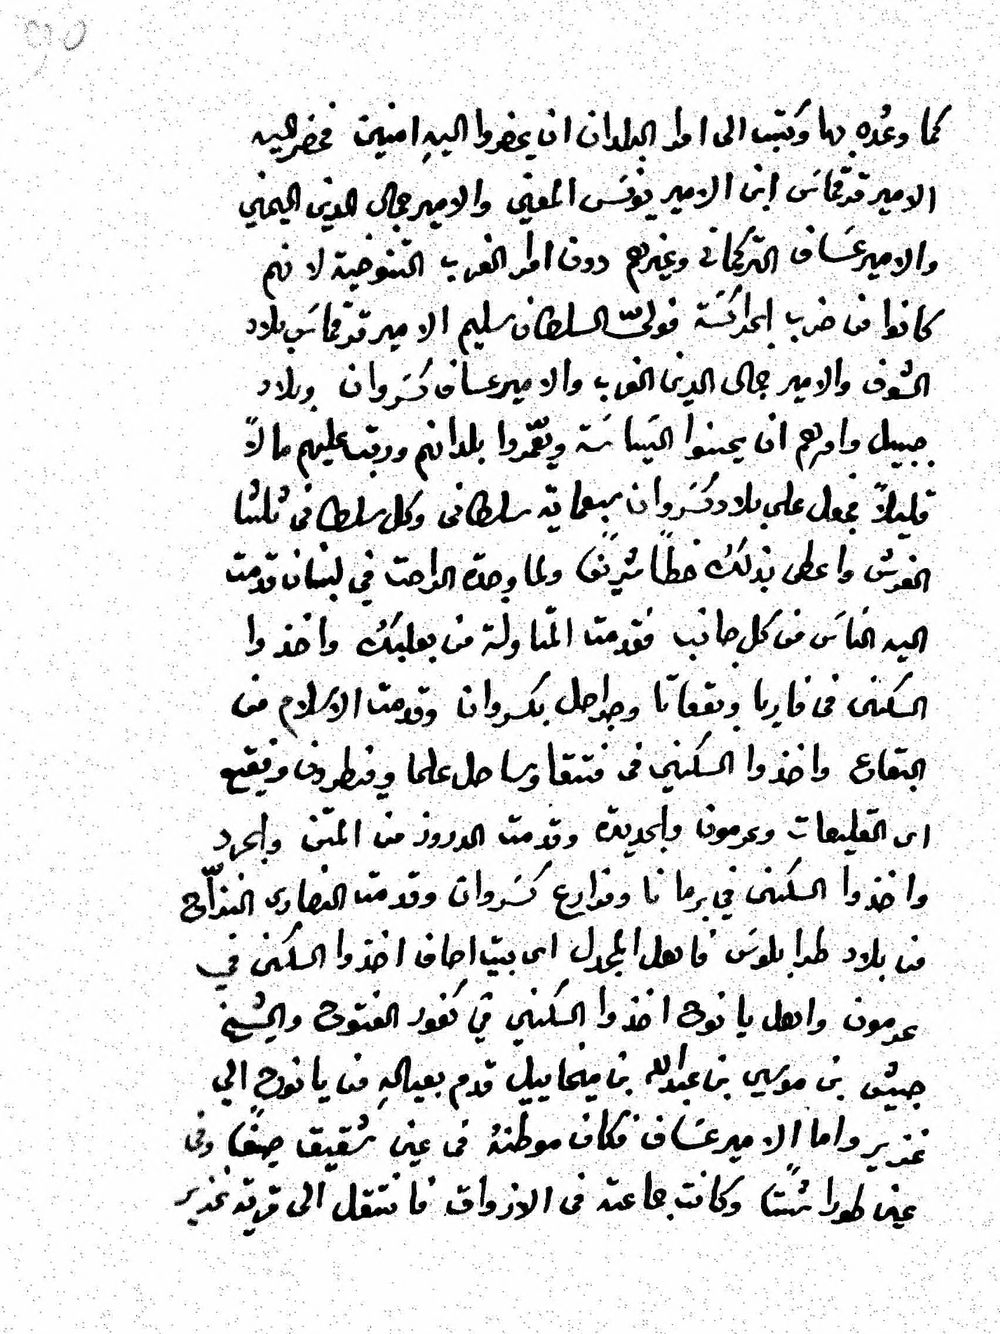 كما وعده بها وكتب الى امرا البلدان ان يحضروا اليه امنين فحضر اليه
الامير قرقماس ابن الامير يونس المعني والامير جمال الدين اليمني
والامير عساف التركماني وغيرهم دون امرا الغرب التنوخية لانهم
كانوا من حزب الجراكسة فولّى السلطان سليم الامير قرقماس بلاد
الشوف والامير جمال الدين الغرب والامير عساف كسروان وبلاد
جبيل وامرهم ان يحسنوا السياسة ويعمّروا بلدانهم ورتب عليهم مالاً
قليلاً فجعل على بلاد كسروان سبعماية سلطاني وكل سلطاني ثلثا
الغرش واعطى بذلك خطاً شريفًا ولما وجدة الراحت في لبنان قدمت
اليه الناس من كل جانب فقدمت المتاولة من بعلبك واخذوا
السكنى في فاريا وبقعاتا وحراجل بكسروان وقدمت الاسلام من
البقاع واخذوا السكني في فتقا وساحل علما وفيطرون وفيقيع
اى القليعات وعرمون والجديدة وقدمت الدروز من المتن والجرد
واخذوا السكنى في برمانا ومزارع كسروان وقدمت النصارى النزاّح
من بلاد طرابلوس فاهل المجدل اى بيت احان اخذوا السكنى في
عرمون واهل يانوح اخذوا السكني في كفور الفتوح والشيخ
حبيش بن موسي بن عبدالله بن ميخاييل قدم بعياله من يانوح الي
غزير واما الامير عساف فكان موطنه في عين شقيق صيفًا وفى
عين طورا شتًا وكانت جماعته في الازواق فانتقل الى قرية غزير